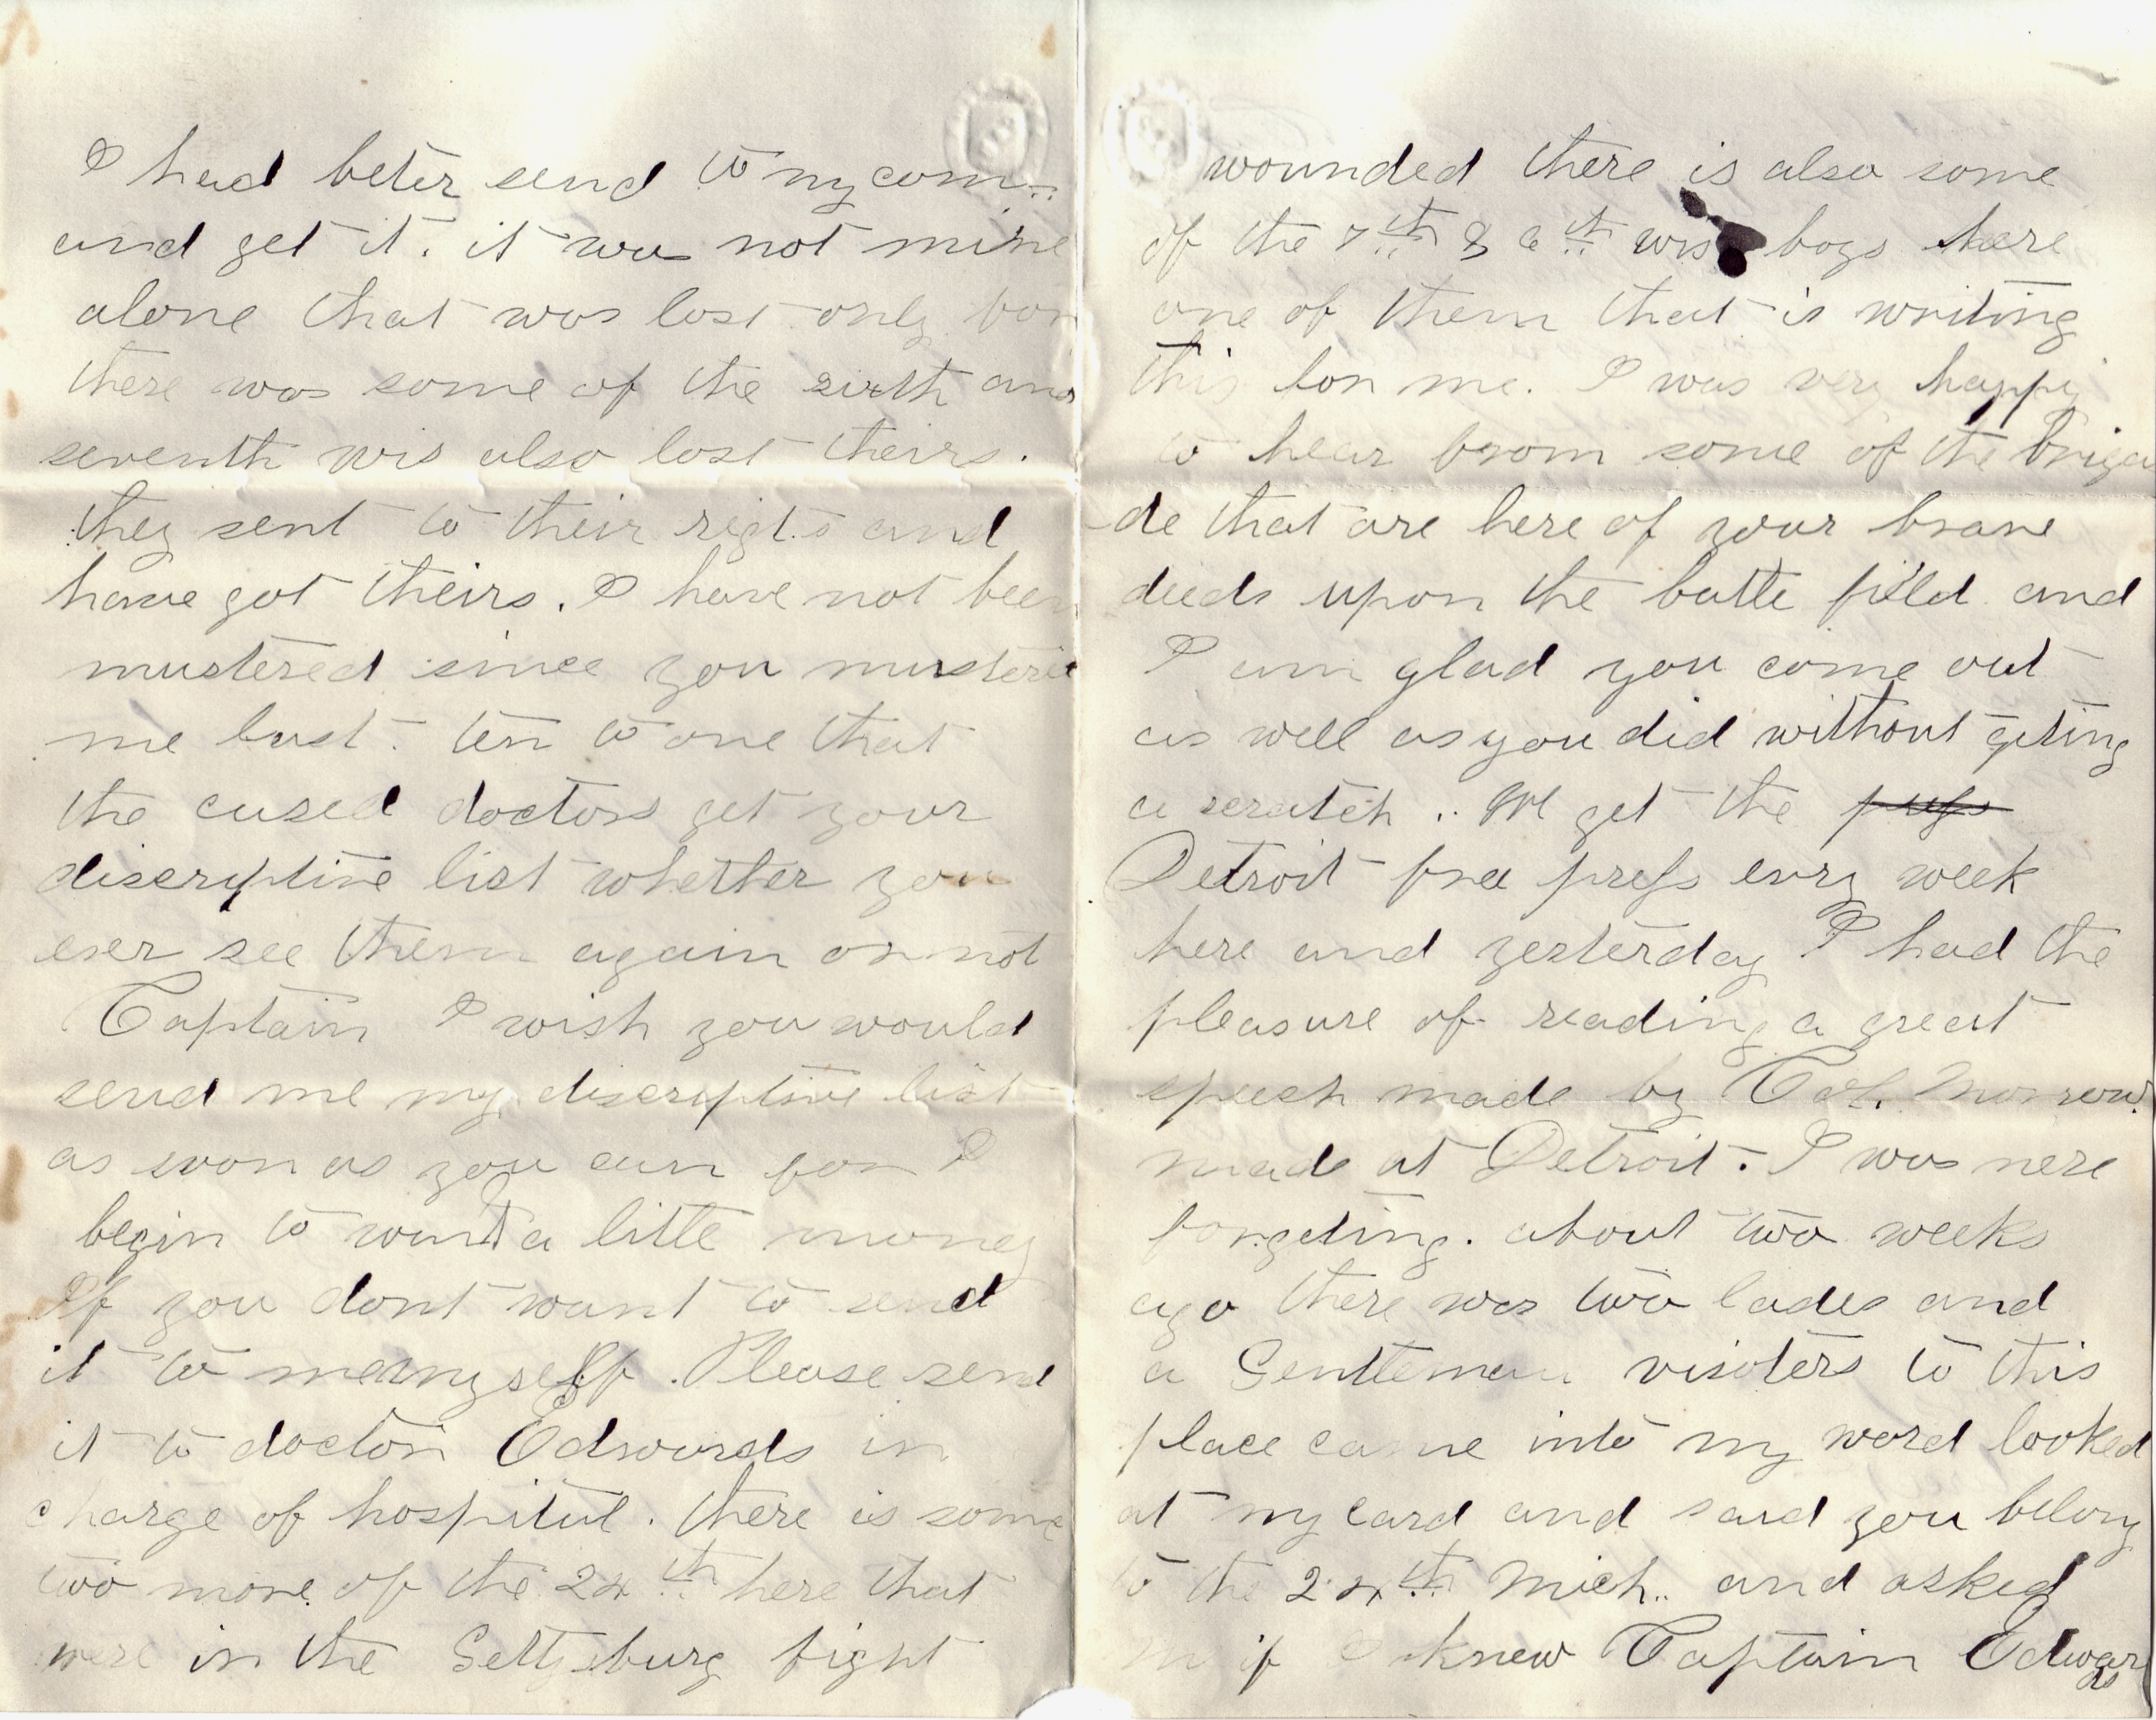 I had beter send to my com..
and get it. it was not mine
alone that was lost only for
there was some of the sixth and
seventh wis also lost theirs.
they sent to their regts and
have got theirs. I have not been
mustered since you mustered
me last. ten to one that
the cused doctors get your
discriptive list whether you
ever see them again or not
Captain I wish you would
send me my discriptive list
as soon as you can for I
begin to want a litle money
If you dont want to send
it to me myself. Please send
it to doctor Edwards in
charge of hospitul. there is some
two more of the 24th here that
were in the Gettysburg fight
wounded there is also some
of the 7th & 6th wis boys here
one of them that is writing
this for me. I was very happy
to hear from some of the briga
-de that are here of your brave
deeds upon the batle field and
I am glad you come out
as well as you did without geting
a scratch .. We get the press
Detroit free press evry week
here and yesterday I had the
pleasure of reading a great
speech made by Col. Morrow
made at Detroit. I was nere
forgeting. about two weeks
ago there was two lades and
a Gentleman visiters to this
place came into my word looked
at my card and said you belong
to the 24th Mich.. and asked
m if I knew Captain Edwards